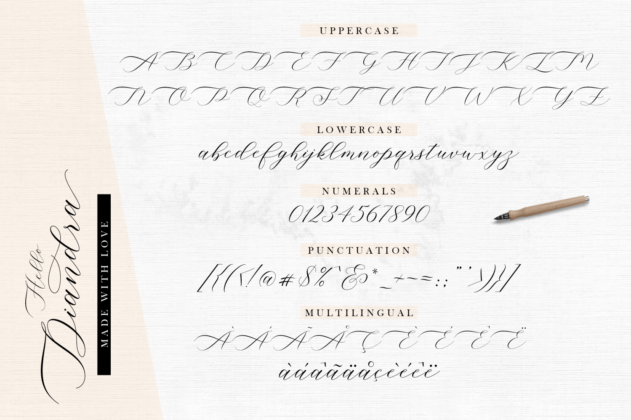 UPPERCASE
A B C D E F G H I J K L M
N O P Q R S T U V W X Y Z
LOWERCASE
abcdefghijklmnopqrstuvwxyz
NUMERALS
01234567890
PUNCTUATION
MULTILINGUAL
Hello
Diandra
MADE WITH LOVE